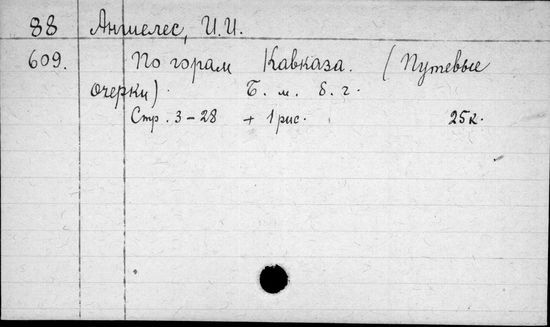 88 Ангиелес, И.И.
609. По горам Кавказа. (Путевые
очерки). Б. м. б. г.
Стр. 3-28 + 1 рис. 25к.